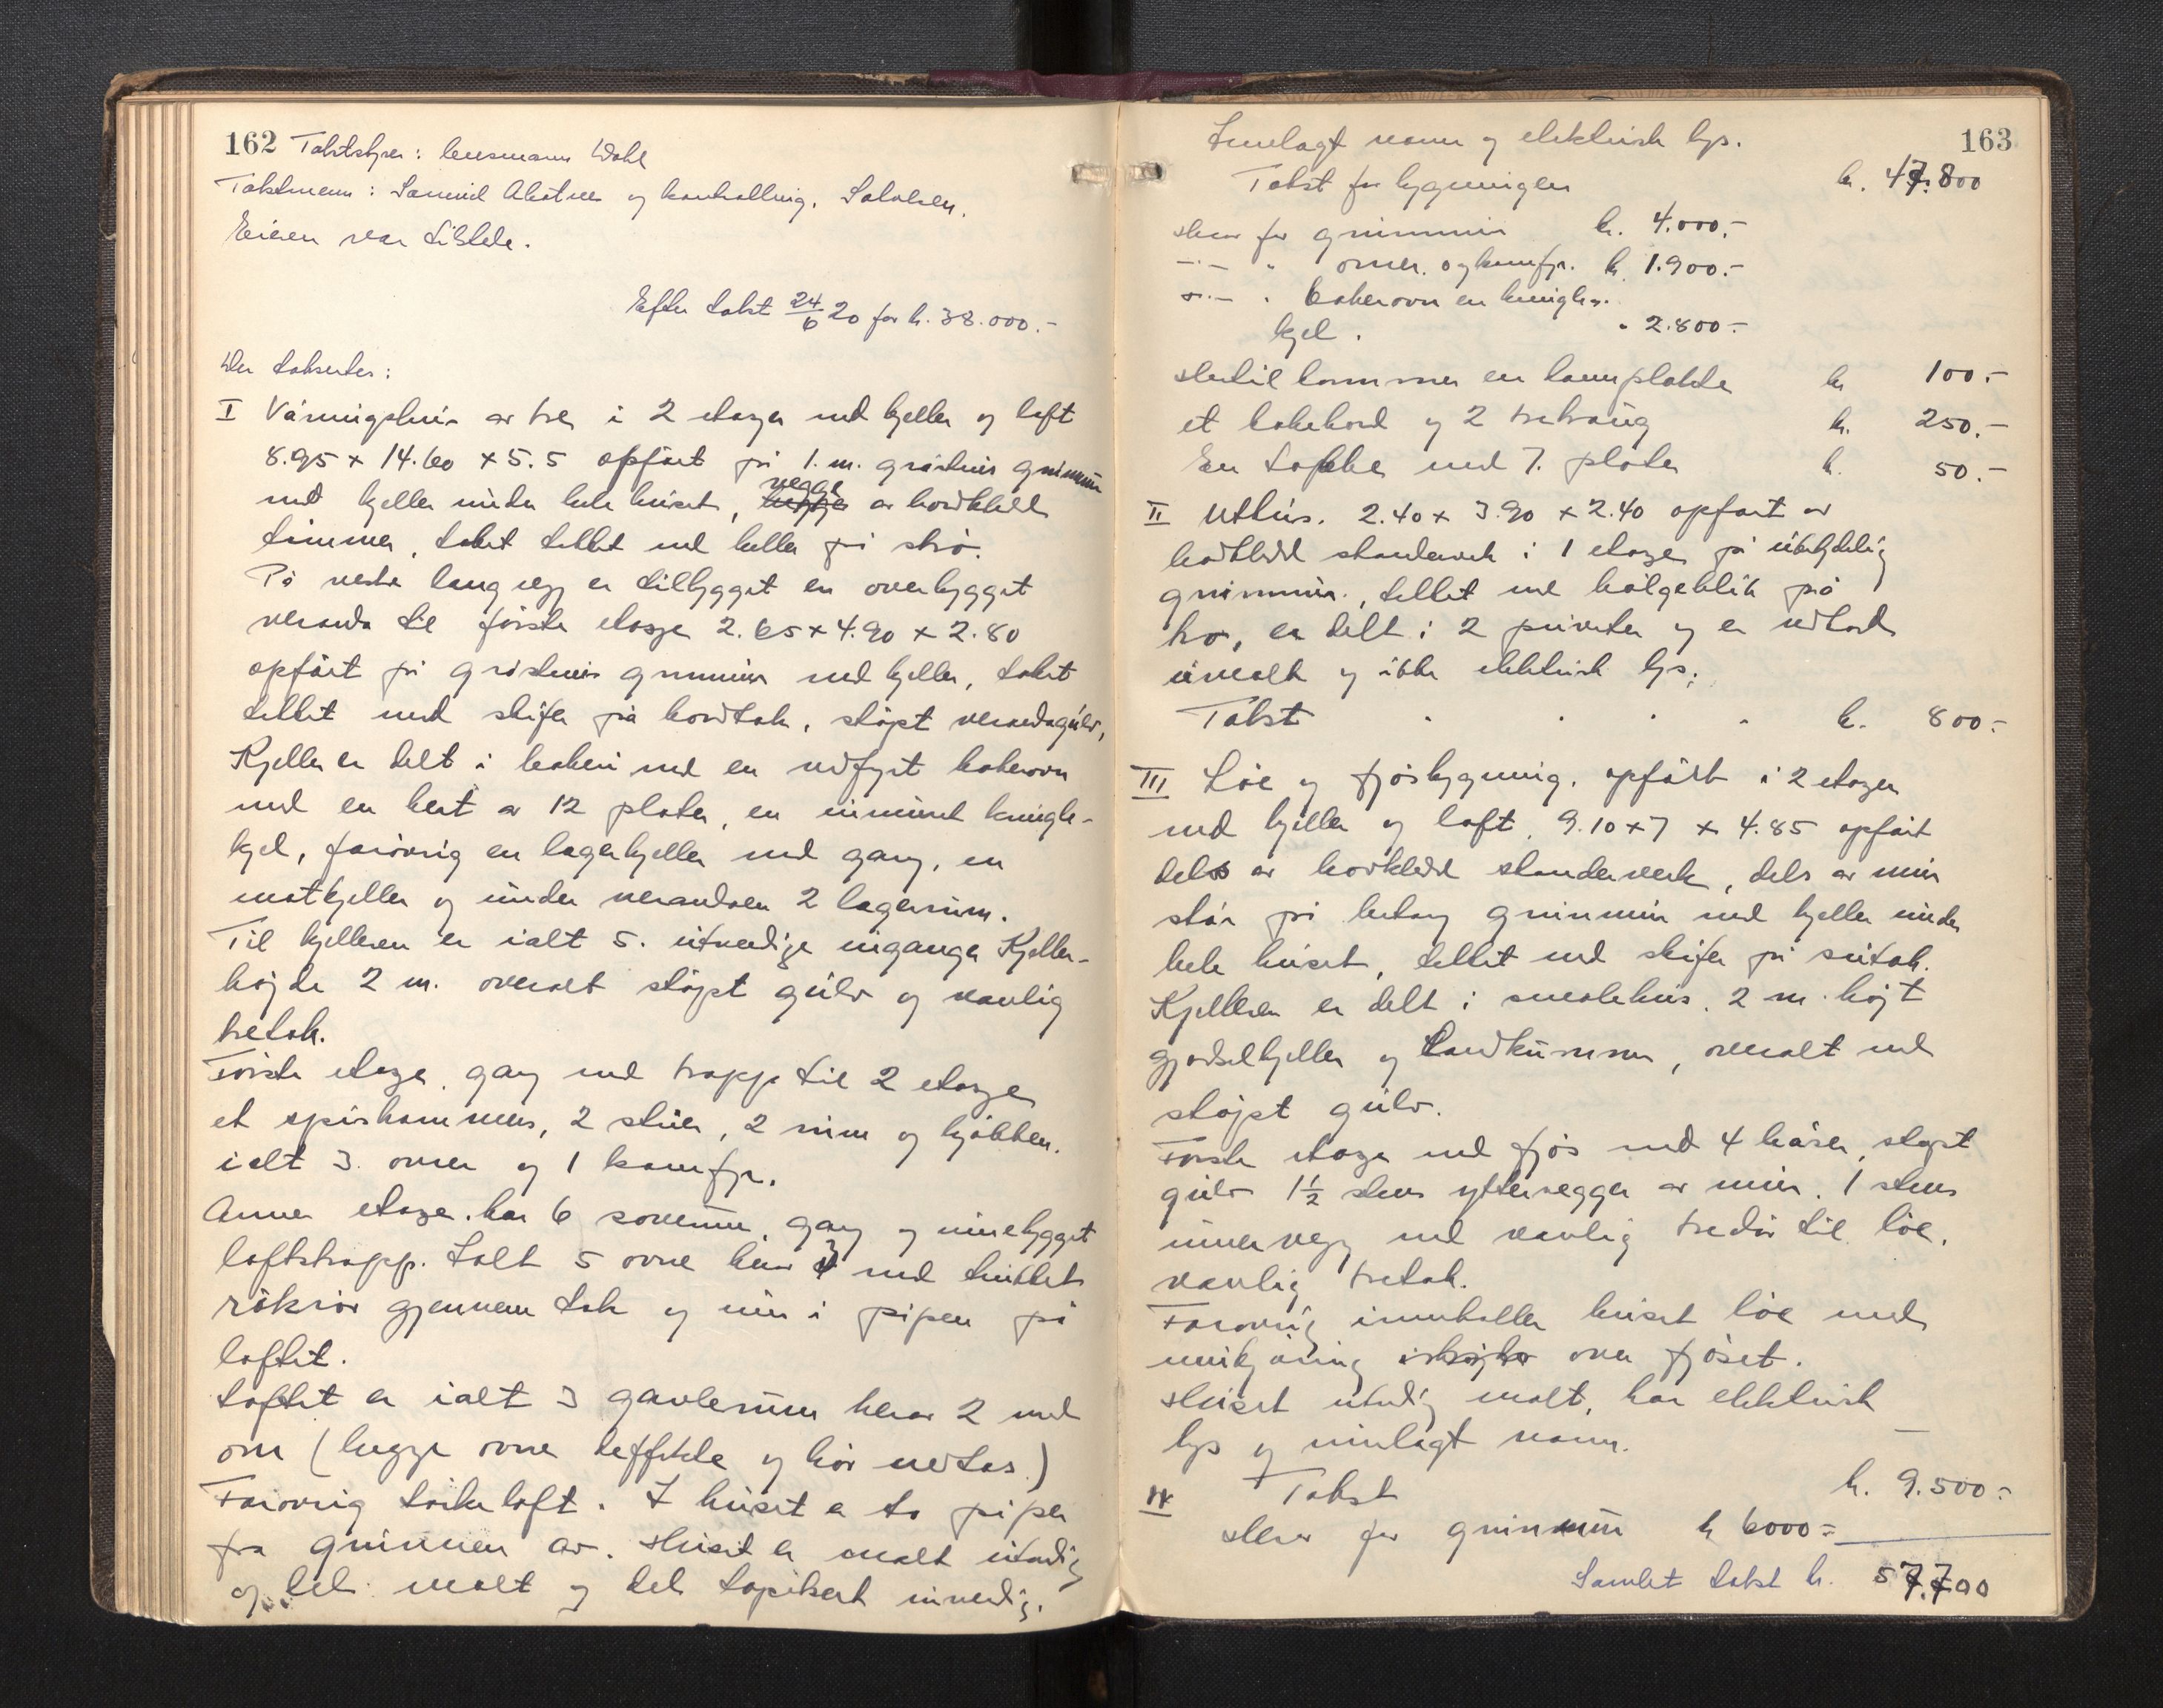 162 Takststyrer: lensmann Dahl
Takstmenn: Samuel og handelborg. Salvesen.
Eieren var tilstede.
Efter takst 24/6 20 for kr. 38.000.-
Der taksertes:
I Våningshus av tre i 2 etager med kjeller og loft
8.95 x 14.60 x 5.5 opført på 1. m. gråstens grunnmur
med kjeller under hele huset, vegge av bordkledd
tømmer, taket tekket med heller på tro.
På vestre langvegg er tilbygget en overbygget
veranda til første etage 2.65 x 4.90 x 2.80
opført på gråstens grunnmur med kjeller, taket
tekket med skifer på bordtak, støpt verandagulv,
Kjeller er delt i bakeri med en vedfyrt bakerovn
med en hert av 12 plater, en innmuret kringle-
kjel, forøvrig en lagerkjeller med gang, en
matkjeller og under verandaen 2 lagerrum.
Til kjelleren er ialt 5. utvendige inganger Kjeller-
højde 2 m. overalt støpt gulv og vanlig
tretak.
Første etage. gang med trapp til 2 etage
et spiskammers, 2 stuer, 2 rum og kjøkken.
ialt 3. ovner og 1 komfyr.
Annen etage har 6 soverum, gang og innebygget
loftstrapp. Ialt 5 ovne herav 3 med
røkrør gjennem tak og inn i pipen på
loftet.
Loftet er ialt 3 gavlerum herav 2 med
ovn (begge ovne deffekte og bør nedtas.)
Forøvrig tørkeloft. I huset er to piper
fra grunnen av. Huset er malt utvendig
og dels malt og dels tapetsert innvendig.
163
Innlagt vann og elektrisk lys.
Takst for bygningen kr. 47.800
Herav for grunnmur kr. 4.000.-
-"- " ovner og komfyr. kr. 1.900.-
-"- " bakerovn en kringle-
kjel. " 2.800.-
Hertil kommer en kanplate kr 100.-
et bakebord og 2 tretraug kr. 250.-
En takke med 7. plater kr. 50.-
II Uthus. 2.40 x 3.90 x 2.40 opført av
bordkledd standerverk i 1 etage på ubetydelig
grunnmur, tekket med bølgeblik på
tro, er delt i 2 priveter og er vedbod
umalt og ikke elektrisk lys.
Takst . . . . kr. 800.-
III Løe og fjøsbygning. opført i 2 etager
med kjeller og loft. 9.10 x 7 x 4.85 opført
dels av bordkledd standerverk, dels av mur
står på betong grunnmur med kjeller under
hele huset, tekket med skifer på sutak.
Kjelleren er delt i smalehus. 2 m. højt
gjødselkjeller og landkummer, overalt med
støpt gulv.
Første etage med fjøs med 4 båser, støpt
gulv 1½ stens yttervegger av mur. 1 stens
innervegg med vanlig tredør til løe.
vanlig tretak.
Forøvrig inneholder huset løe med
innkjøring over fjøset.
Huset utvendig malt, har elektrisk
lys og innlagt vann.
IV Takst kr. 9.500.-
Herav for grunnmur kr 6000.-
Samlet takst kr. 57.700